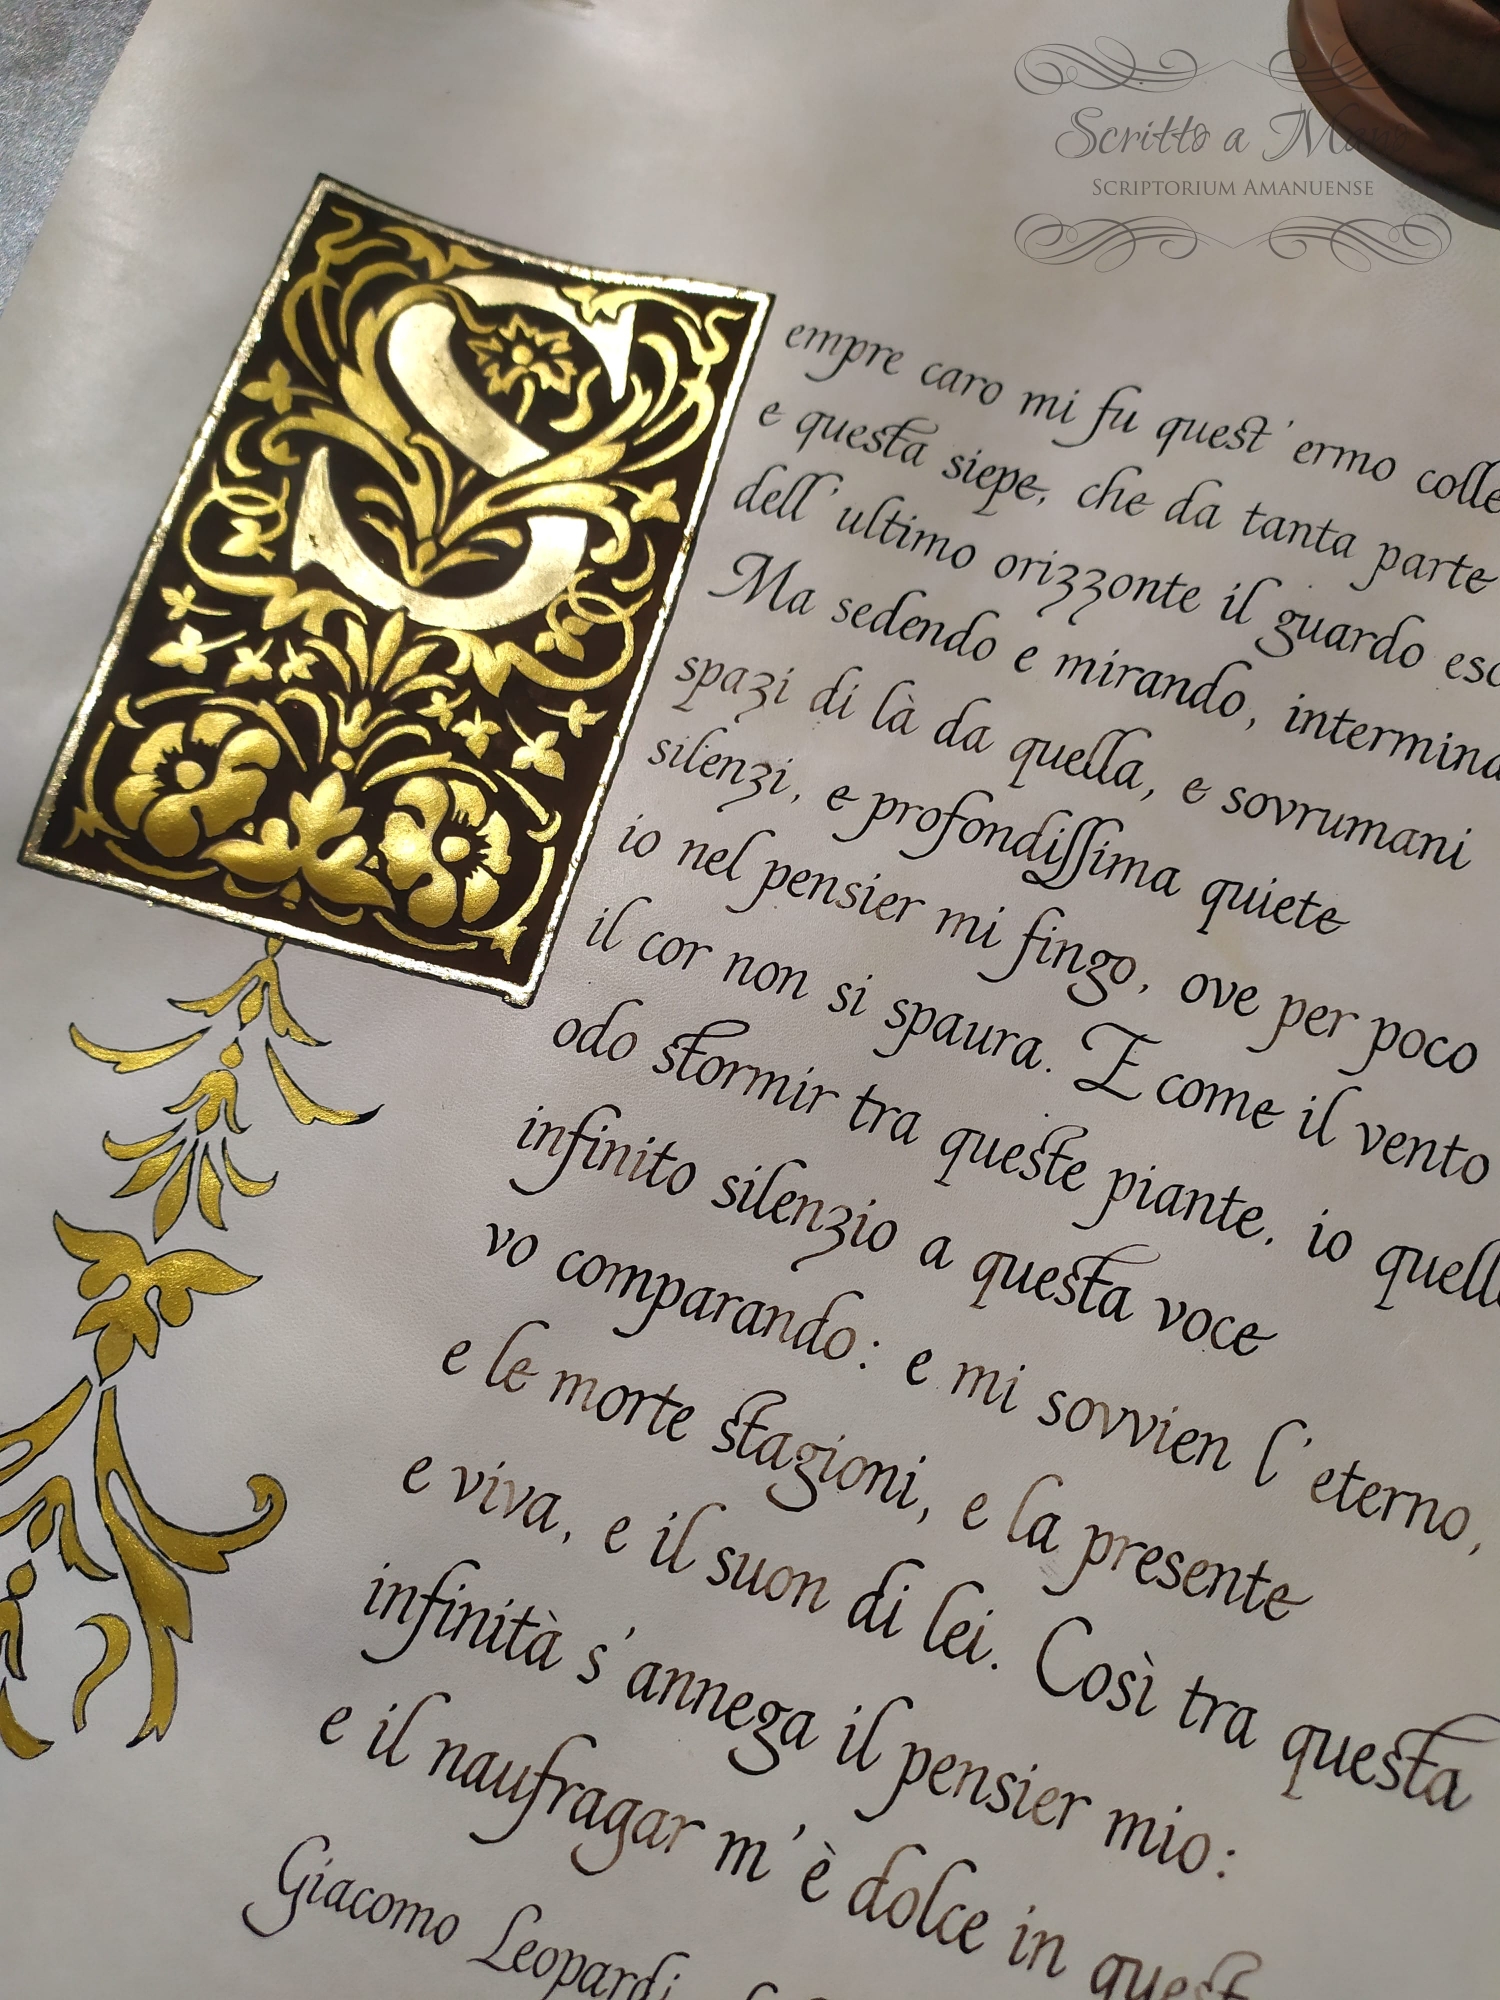 Scritto a Mano
SCRIPTORIUM AMANUENSE
Sempre caro mi fu quest'ermo colle
e questa siepe, che da tanta parte
dell'ultimo orizzonte il guardo esc
Ma sedendo e mirando, intermina
spazi di là da quella, e sovrumani
silenzi, e profondissima quiete
io nel pensier mi fingo, ove per poco
il cor non si spaura. E come il vento
odo stormir tra queste piante, io quell
infinito silenzio a questa voce
vo comparando: e mi sovvien l'eterno,
e le morte stagioni, e la presente
e viva, e il suon di lei. Così tra questa
infinità s'annega il pensier mio:
e il naufragar m'è dolce in quest
Giacomo Leopardi